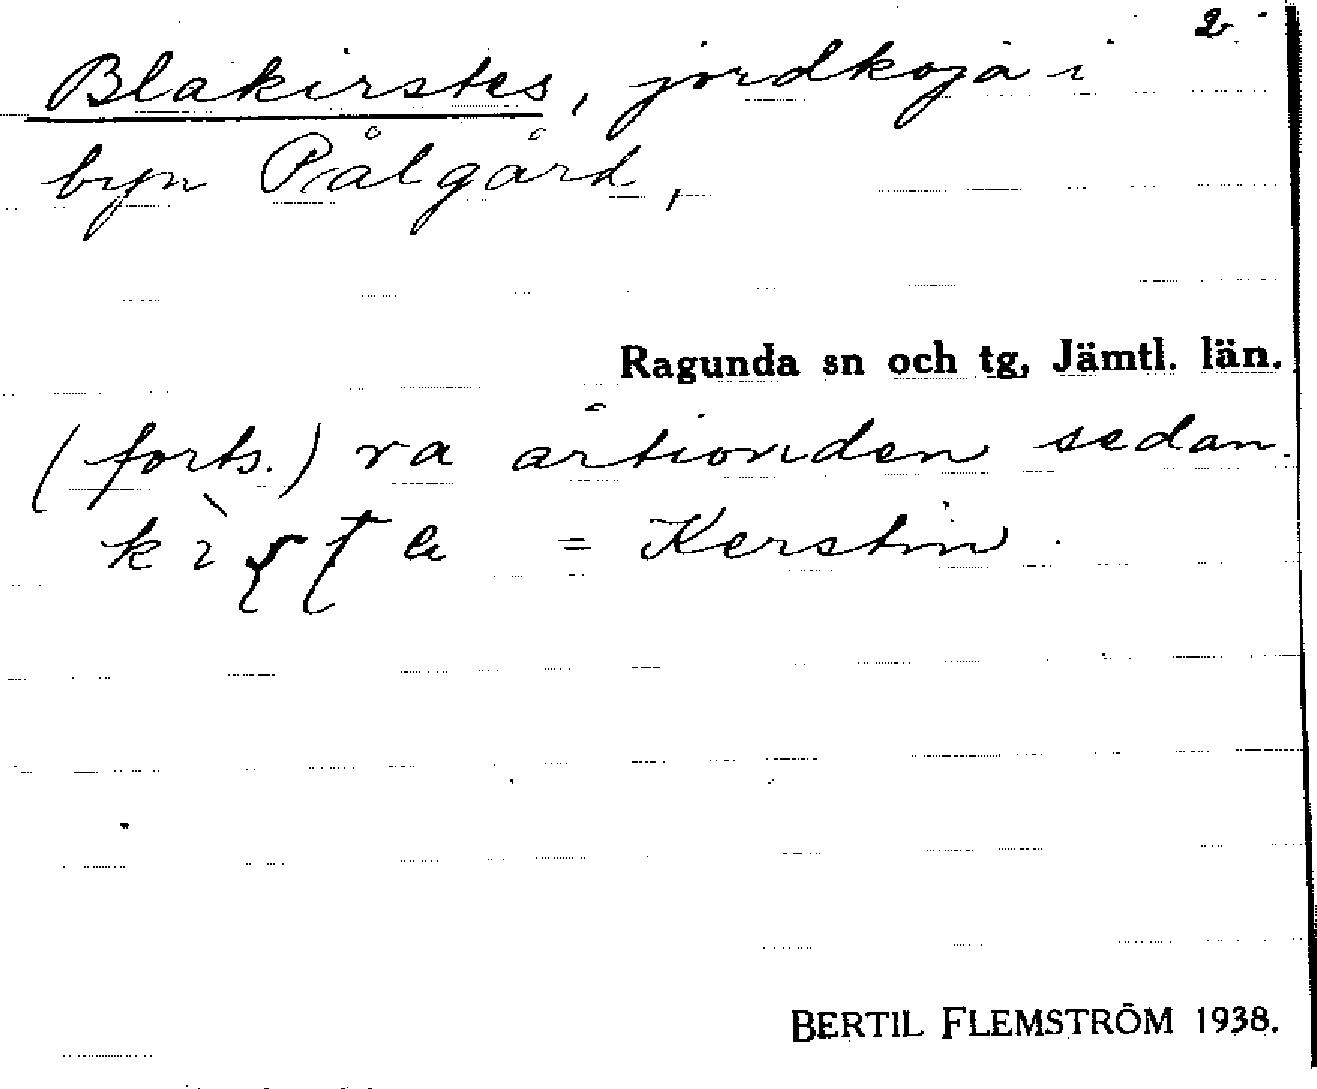 2
Blakirstes, jordkoja i
byn Pålgård,
Ragunda sn och tg, Jämtl. län.
(forts.) ra årtionden sedan.
= Kerstin.
BERTIL FLEMSTRÖM 1938.